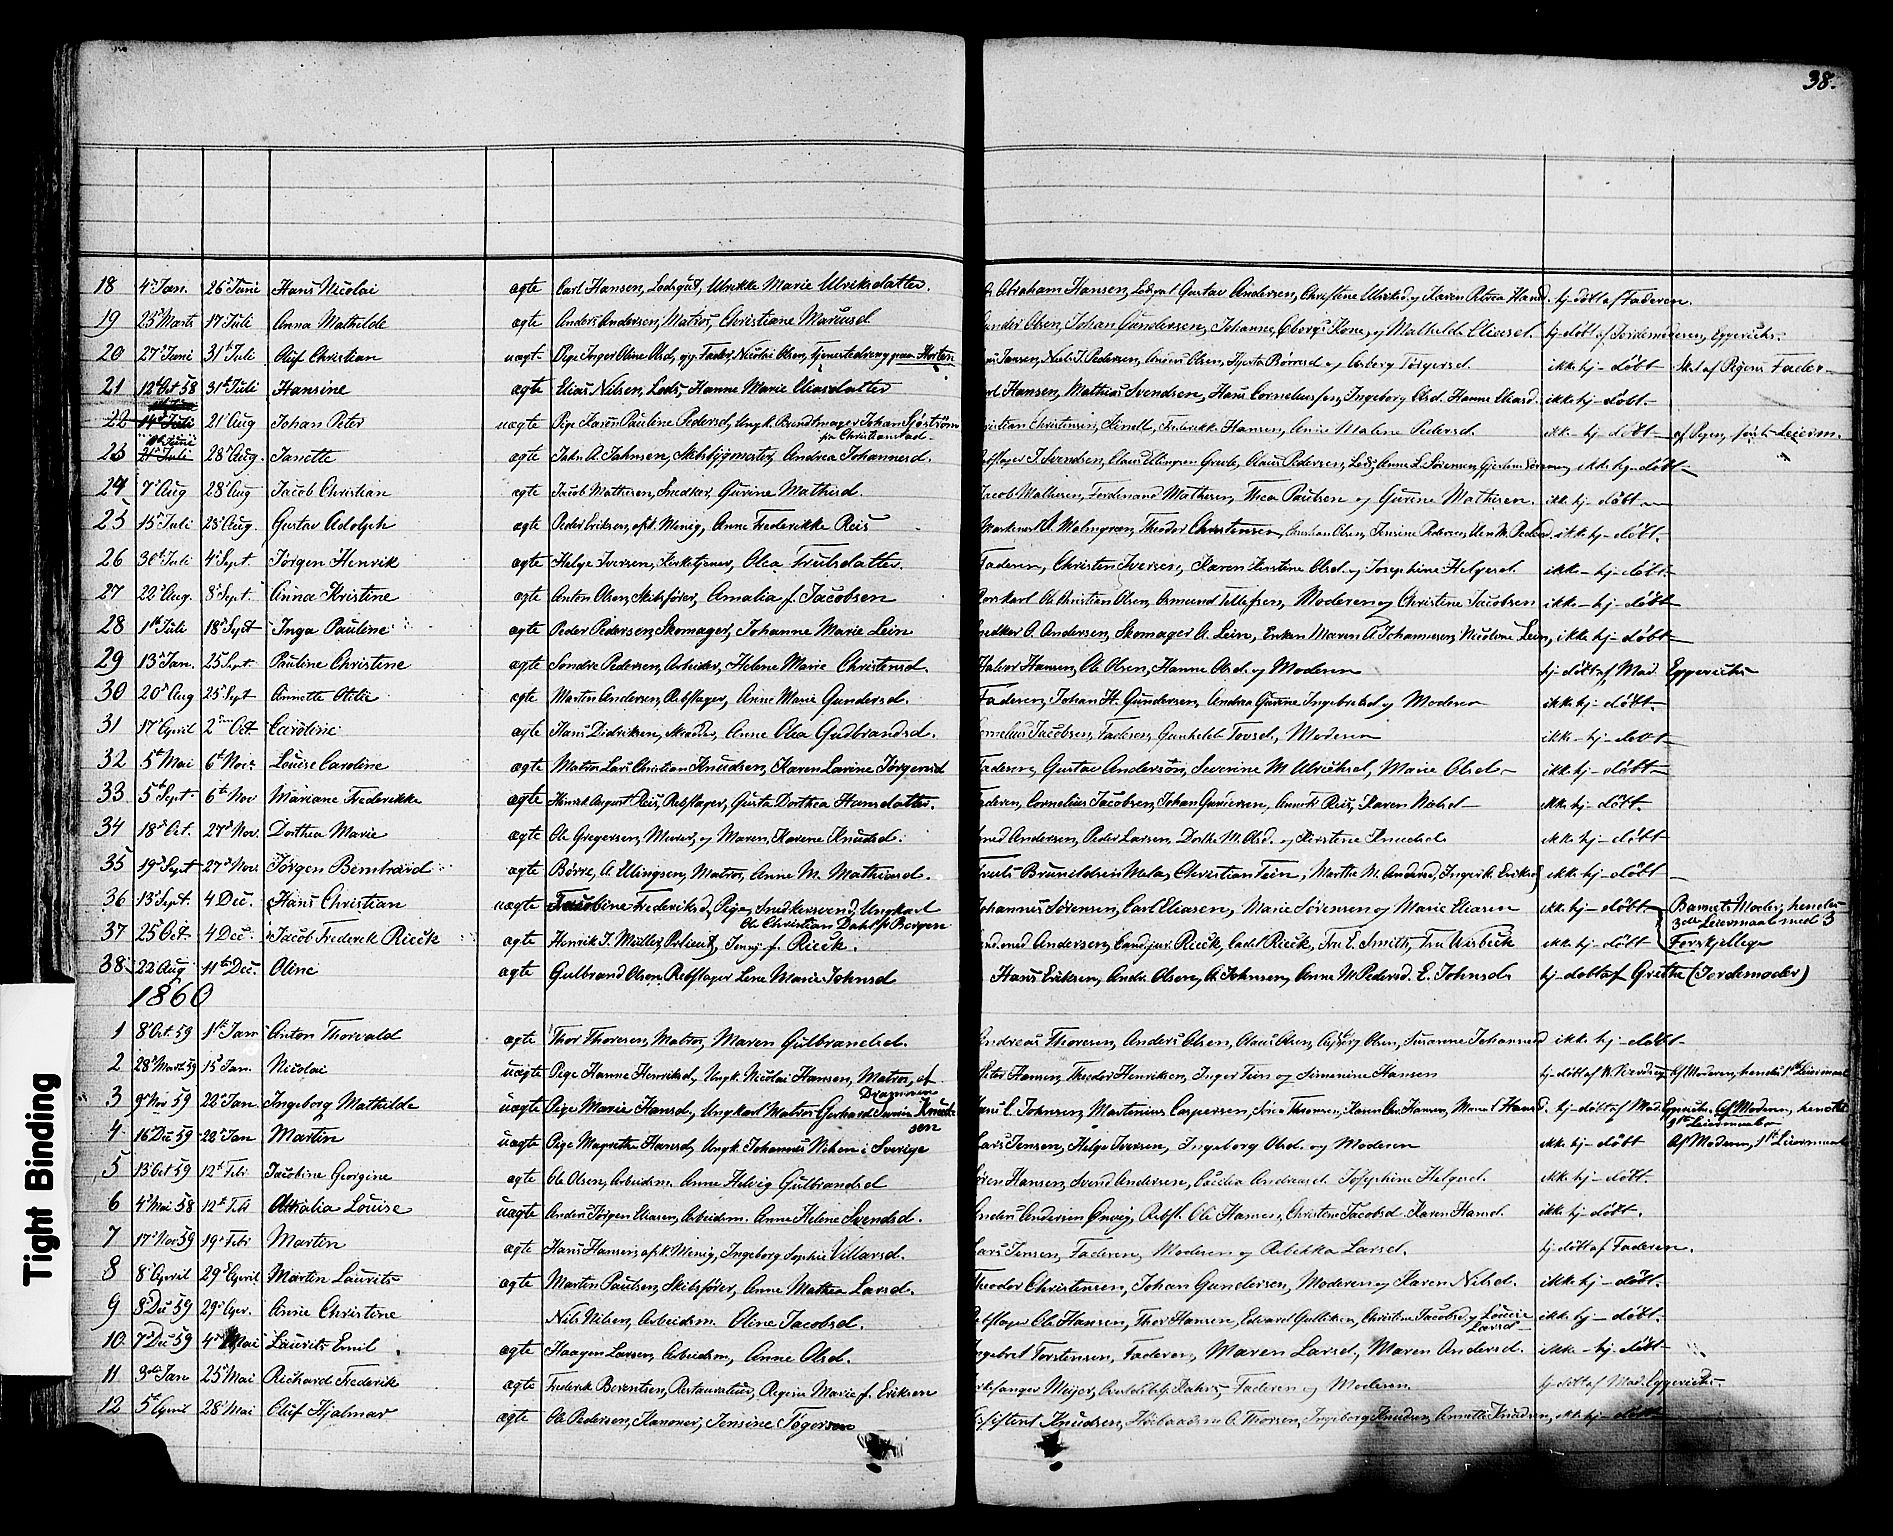 38.
18 4de Jan. 26 Juni Hans Nicolai ægte Carl Hansen, Lodsgut, Ulrikke Marie Ulriksdatter. Abraham Hansen, Gustav Andersen, Christine Ulriksd. og Karen Petrea Hansd. hj-døbt af Faderen.
19 25 Marts 17 Juli Anna Mathilde ægte Anders Andersen, Matros, Christiane Mariusd. Olsen, Johan Gundersen, Johanne Obergs Kone, og Mathilde Eliasd. hj-døbt af Jordemoderen, Eggerichs.
20 27 Juni 31te Juli Oluf Christian uægt. Pige Inger Oline Olsd., og Fader, Nicolai Olsen, Tjenestedreng paa Horten Jansen, Niels J. Pedersen, Anders Olsen, og Asberg Torgersd. ikke hj-døbt Fader
21 12te Oct 58 31te Juli Hansine ægte Elias Nilsen, Lods, Hanne Marie Eliasdatter Hansen, Mathias Svendsen, Hans Corneliussen, Ingeborg Olsd. Hanne Eliasd. ikke hj-døbt.
22 14 Juli 21 Aug Johan Peter uægte Pige Karen Pauline Pedersd., Ungk. Bundtmager Johan Sjöström
fra Christianstad
Christensen, Frederikke Hansen, Malene Pedersd. ikke-hj-døbt
23 21 Juli 28 Aug. Janette ægte Jahn A. Jahnsen, Skibsbygmester, Andrea Johannesd. J. Svendsen, Claus Ellingsen Greole, Olaus Pedersen, Lods, ikke hj-døbt
24 7 Aug 28 Aug Jacob Christian ægte Jacob Mathisen, Snedker, Gurine Mathisd. Jacob Mathisen, Ferdinand Mathisen, Thea Paulsen og Gurine Mathisen. ikke hj-døbt
25 15 Juli 28 Aug. Gustav Adolph ægte Peder Eriksen, afsk. Menig, Anne Frederikke Reis Malmgreen, Theodor Christensen, Christian Olsen, Jensine Pedersen, ikke hj-døbt.
26 30te Juli 4de Sept. Jörgen Henrik ægte Helge Iversen, Kirketjener, Olea Trulsdatter. Faderen, Christen Iversen, Karen Kirstine Olsd. og Josephine Helgesd. ikke-hj-døbt
27 22 Aug. 8 Sept. Anna Kristine ægte Anton Olsen, Skibsfører, Amalia f. Jacobsen Christian Olsen, Osmund Tellefsen, Moderen og Christine Jacobsen ikke-hj-døbt
28 1te Juli 18 Sept Inga Pauline ægte Peder Pedersen, Skomager, Johanne Marie Lein Snedker O. Andersen, Skomager A. Lein, Enken Maren A. Johannesen, Nicoline Lein, ikke hj-døbt
29 13 Jan. 25 Sept. Pauline Christine ægte Sondre Pedersen, Arbeider, Helene Marie Christensd. Halvor Hansen, Ole Olsen, Hanne Olsd. og Moderen hj-døbt af Mad. Eggerichs
30 20 Aug 25 Sept Annette Otilie ægte Martin Andersen, Rebslager, Anne Marie Gundersd. Faderen, Johan H. Gundersen, Andrea Gurine Ingebretsd. og Moderen ikke hj-døbt
31 17 April 2den Oct Caroline ægte Hans Didriksen, Skrædder, Anne Olea Gudbrandsd. Cornelius Jacobsen, Faderen, Gunhild Tovsd., Moderen ikke-hj-døbt
32 5te Mai 6te Novr Louise Caroline ægte Matros Lars Christian Knudsen, Karen Lavine Jörgensd Faderen, Gustav Andersøn, Severine M. Ulriksd., Marie Olsd. ikke hj-døbt
33 5te Sept. 6te Nov Mariane Frederikke ægte Henrik August Reis, Rebslager, Gusta Dorthea Hansdatter. Faderen, Cornelius Jacobsen, Johan Gundersen, Reis, Karen Nilsd ikke hj-døbt.
34 18 Oct. 27 Nov. Dorthea Marie ægte Ole Gregersen, Murer, og Maren Karine Knudsd. Andersen, Peder Larsen, Dorthe M. Olsd. og Kirstine Knudsd ikke hj-døbt
35 19 Sept 27 Nov. Jörgen Bernhard ægte Börre A. Ellingsen, Matros, Anne M. Mathiasd. Truls Brynildsen Mela, Christian Fein, Marthe M. Andersd, ikke hj-døbt
36 13 Sept. 4 Dec. Hans Christian uægte Jacobine Frederiksd., Pige, Snedkersvend, Ungkarl
Ole Christian Dahl fr. Bergen
Johannes Sörensen, Carl Eliasen, Marie Sörensen og Marie Eliasen ikke hj-døbt Barnets Moder, hendes
3die Leiermaal med 3
37 25 Oct. 4 Dec. Jacob Frederik Rieck ægte Henrik J. Müller, Jenny f. Rieck. Andersen, Cand. jur. Rieck, Cadet Rieck, Fru E. Smith, Fru Wisbeck ikke hj døbt Forskjellige
38 22 Aug 11te Dec. Oline ægte Gulbrand Olsen, Rebslager Lene Marie Johnsd Hans Eriksen, Andr. Olsen, A. Johnsen, Anne M. Pedersd. E. Johnsd. hj-døbt af Grethe (Jordemoder)
1860
1 8 Oct. 59 1te Jan Anton Thorvald ægte Thor Thoresen, Matros, Maren Gulbrandsd. Andreas Thoresen, Anders Olsen, Olaus Olsen, Olsen, Susanne Johannesd ikke hj-døbt
2 28 Marts 59 15 Jan. Nicolai uægte Pige Hanne Henriksd., Ungk. Nicolai Hansen, Matros, af
Drammen
Peter Hansen, Theodor Henriksen, Inger Fein og Simenine Hansen hj-døbt af Af Moderen, hendes 1ste Leiermaal
3 9 Nov 59 22 Jan. Ingeborg Mathilde uægte Pige Marie Hansd., Ungkarl Matros Gerhard Knud-
sen
Hans C. Johnsen, Martinius Caspersen, Thoresen, hj-døbt af Mad. Eggerichs. Af Moderen, hendes
Leiermaal
4 16 Dec 59 22 Jan Martin uægte Pige Magrethe Hansd., Ungk. Johannes Nilsen i Sverige Lars Jensen, Helge Iversen, Ingeborg Olsd. og Moderen ikke hj-døbt Af Moderen, 1ste Leiermaal
5 13 Oct 59 12te Feb Jacobine Georgine ægte Ole Olsen, Arbeidsm. Anne Helvig Gulbrandsd Sören Hansen, Svend Andersen, Cecilia Andreasd. Josephine Helgesd. ikke hj-døbt.
6 4 Mai 58 12te Feb Amalia Louise uægte Anders Jörgen Eliasen, Arbeidsm. Anne Helene Svendsd. Anders Andersen Onvej, Rebsl. Ole Hansen, Christine Jacobsd Karen Hansd. ikke hj-døbt.
7 17 Nov 59 19 Feb Martin ægte Hans Hansen, afsk. Menig, Ingeborg Sophie Villarsd. Lars Jensen, Faderen, Moderen og Rebekka Larsd. hj døbt af Faderen.
8 8 April 29 April Martin Laurits ægte Martin Paulsen, Skibsfører, Anne Mathea Larsd. Theodor Christensen, Johan Gundersen, Moderen og Karen Nilsd. ikke hj-døbt.
9 8 Dec 59 29 Apr. Anne Christine Nils Nilsen, Arbeidsm. Oline Jacobsd. Rebslager Ole Hansen, Thor Hansen, Edvard Gulliksen, Christine Jacobsd. og Louise
Larsd
ikke hj-døbt.
10 7 Dec 59 4 Mai Laurits Emil ægte Haagen Larsen, Arbeidsm, Anne Olsd. Ingebret Torstensen, Faderen, Maren Larsd., Maren Andersd. ikke-hj-døbt
11 3die Jan 25 Mai Richard Frederik ægte Frederik Berentsen, Restauratør, Regine Marie f. Eriksen Meijer, Faderen og Moderen. hj-døbt af Mad. Eggerichs.
12 5te April 28 Mai Oluf Hjalmar ægte Ole Pedersen, Kanoner, Jensine Tögersen Knudsen, O. Thorsen, Ingeborg Knudsen, Annette Knudsen, ikke hj-døbt
Tight Binding